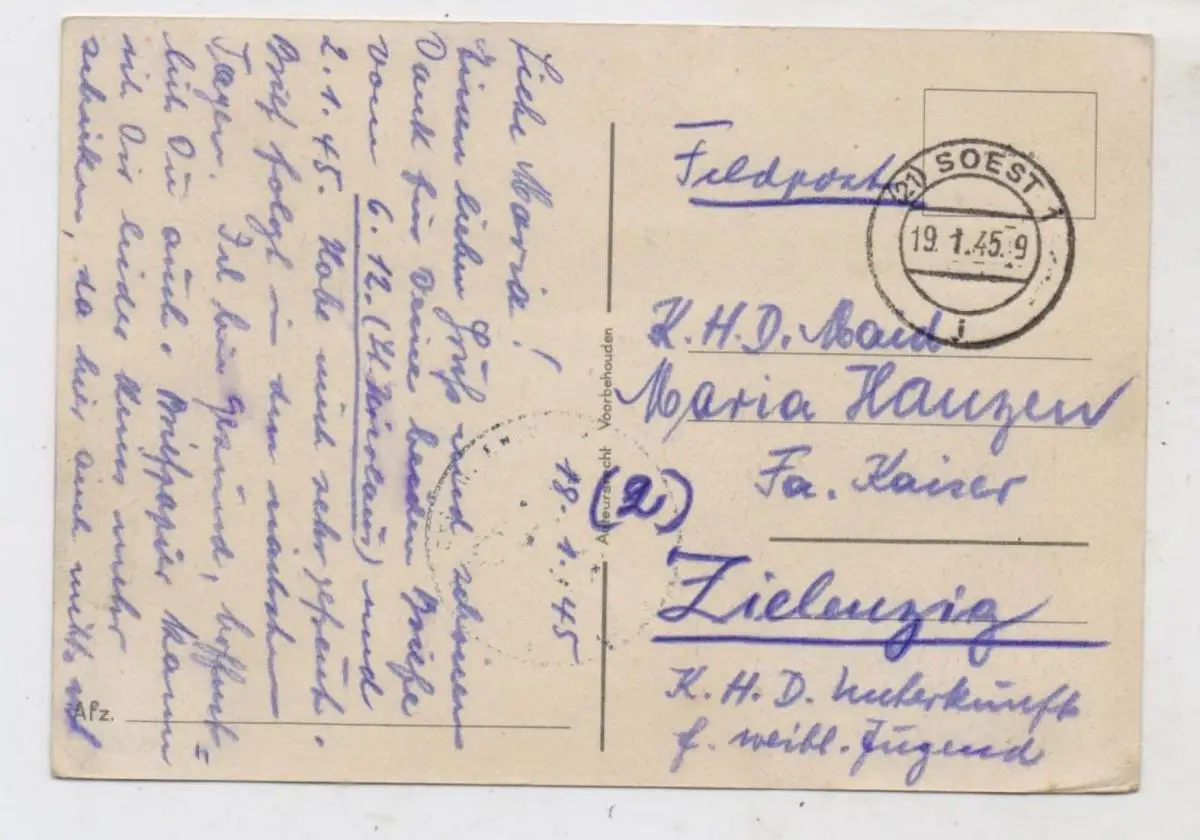 18.1.45
Liebe Maria!
Einen lieben Gruß und schönen
Dank für Deine beiden Briefe
vom 6.12. (H. Nikolaus) und
2.1.45. Habe mich sehr gefreut.
Brief folgt in den nächsten
Tagen. Ich bin gesund, hoffent=
lich Du auch. Briefpapier kann
ich Dir leider keines mehr
schicken, da hier auch nichts ist
APz.
Auteursrecht Voorbehouden
Feldpost
(21) SOEST 1
19.1.45.9
i
K.H.D. Maid
Maria Hauzen
Fa. Kaiser
(2)
Zielenzig
K.H.D. Unterkunft
f. weibl. Jugend